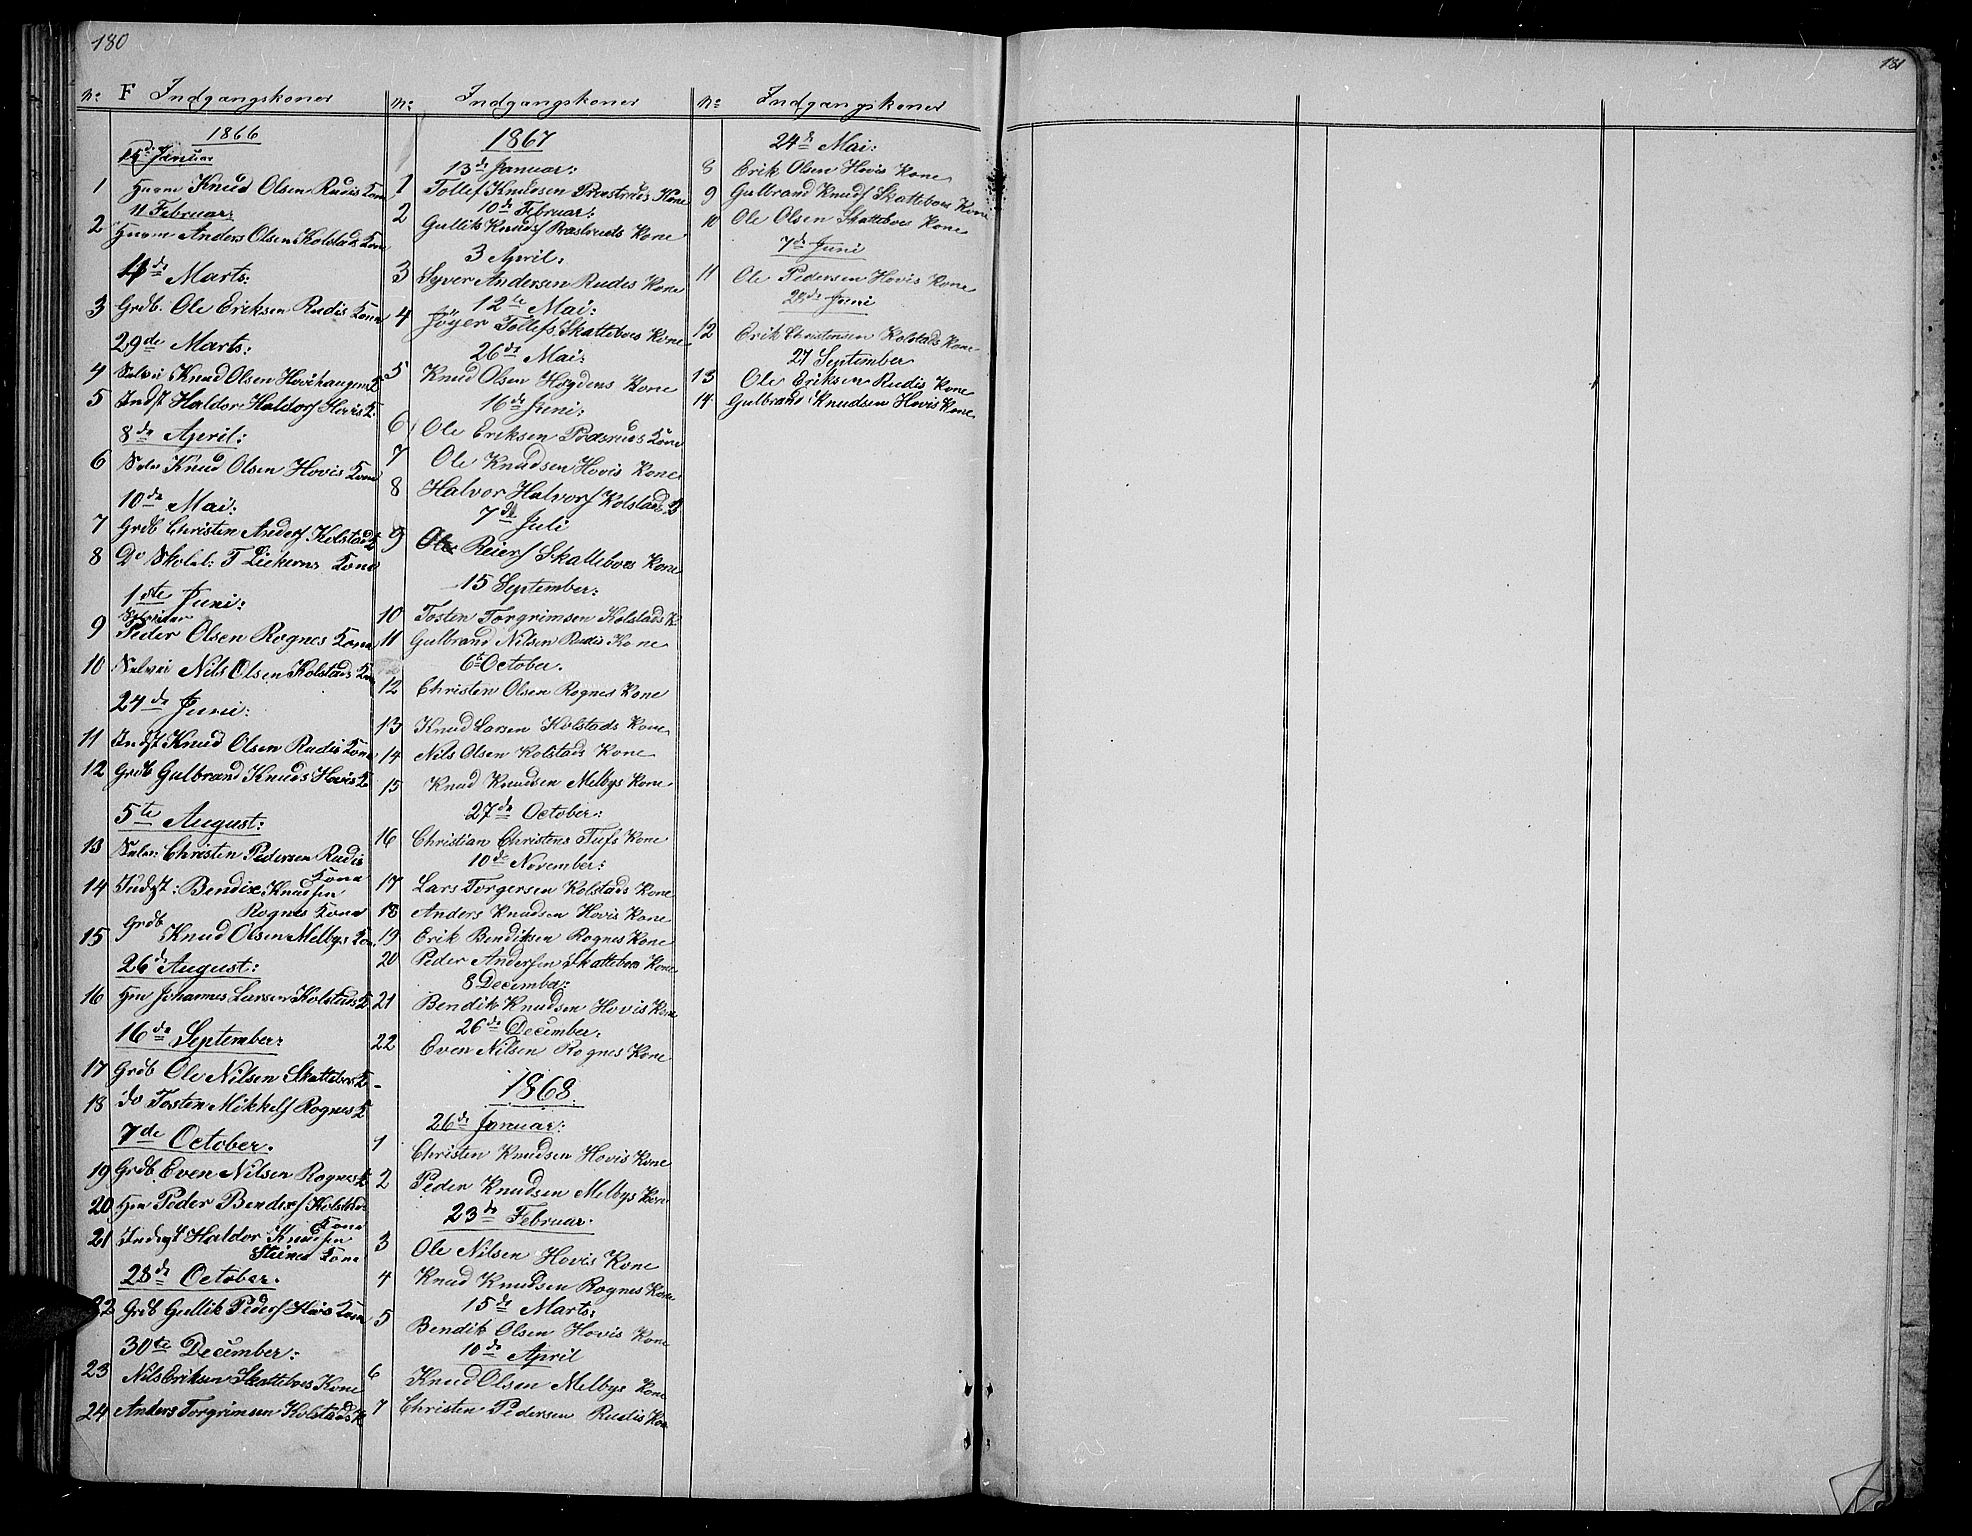 180
No F Indgangskoner
1866
14de Januar
1 Huum Knud Olsen Rudis Kone
11 Februar:
2 Huum Anders Olsen Kolstads Kone
4de Marts:
3 Grdb. Ole Eriksen Rudis Kone
29de Marts:
4 Knud Olsen Hovihaugens K
5 Indst Haldor Haldors Hovis K.
8de April:
6 Selv Knud Olsen Hovis Kone
10de Mai:
7 Grdb Christen Anders Kolstads K
8 Do Skolel: T Liekerns Kone
1ste Juni:
9 Peder Olsen Rognes Kone
10 Selvei Nils Olsen Kolstads Kone
24de Juni:
11 Indst Knud Olsen Rudis Kone
12 Grdb Gulbrand Knuds Hovis K
5te August:
13 Selv: Christen Pedersen Rudis
Kone
14 Indst: Bendix Knudsen
Rognes Kone
Grdb
15 Knud Olsen Melbys Kon
26de August:
16 Hm Johannes Larsen Kolstads K
16de September:
17 Grdb Ole Nilsen Skatteboes K
18 do Tosten Mikkels Rognes K
7de October.
19 Grdb Even Nilsen Rognes K
20 Hm Peder Bendixs Kolstads
Kone
21 Indst Haldor Knudsen
Steines Kone
28de October.
22 Grdb Gullik Peders Hovis Kone
30te December:
23 Nils Eriksen Skatteboes Kone
24 Anders Torgrimsen Kolstads K
No Indgangskoner
1867
13de Januar:
1 Tollef Knudsen Præstruds Kone
10de Februar:
2 Gullik Knuds Præstruds Kone
3 April:
3 Syver Andersen Rudis Kone
12te Mai:
4 Jöger Tollefs Skatteboes Kone
26de Mai:
5 Knud Olsen Høgdens Kone
16de Juni:
6 Ole Eriksen Kone
7 Ole Knudsen Hovis Kone
8 Halvor Halvors Kolstads K
7de Juli
9 Ole Reiers Skatteboes Kone
15 September:
10 Tosten Torgrimsen Kolstads K
11 Gulbrand Nilsen Rudis Kone
6te October.
12 Christen Olsen Rognes Kone
13 Knud Larsen Kolstads Kone
14 Nils Olsen Kolstads Kone
15 Knud Knudsen Melbys Kone
27de October:
16 Christian Christens Tufs Kone
10de November:
17 Lars Torgersen Kolstads Kone
18 Anders Knudsen Hovis Kone
19 Erik Bendiksen Rognes Kone
20 Peder Andersen Skatteboes Kone
8 December:
21 Bendik Knudsen Hovis Kone
26de December:
22 Even Nilsen Rognes Kone
1868
26de Januar:
1 Christen Knudsen Hovis Kone
2 Peder Knudsen Melbys Kone
23de Februar:
3 Ole Nilsen Hovis Kone
4 Knud Knudsen Rognes Kone
15de Marts:
5 Bendik Olsen Hovis Kone
10de April
6 Knud Olsen Melbys Kone
7 Christen Pedersen Rudis Kon
No Indgangskoner
24de Mai:
8 Erik Olsen Hovis Kone
9 Gulbrand Knuds Skatteboes Kone
10 Ole Olsen Skatteboes Kone
7de Juni
11 Ole Pedersen Hovis Kone
Juni
12 Erik Christensen Kolstads Kone
27 September
13 Ole Eriksen Rudis Kone
14 Gulbrand Knudsen Hovis Kone
181